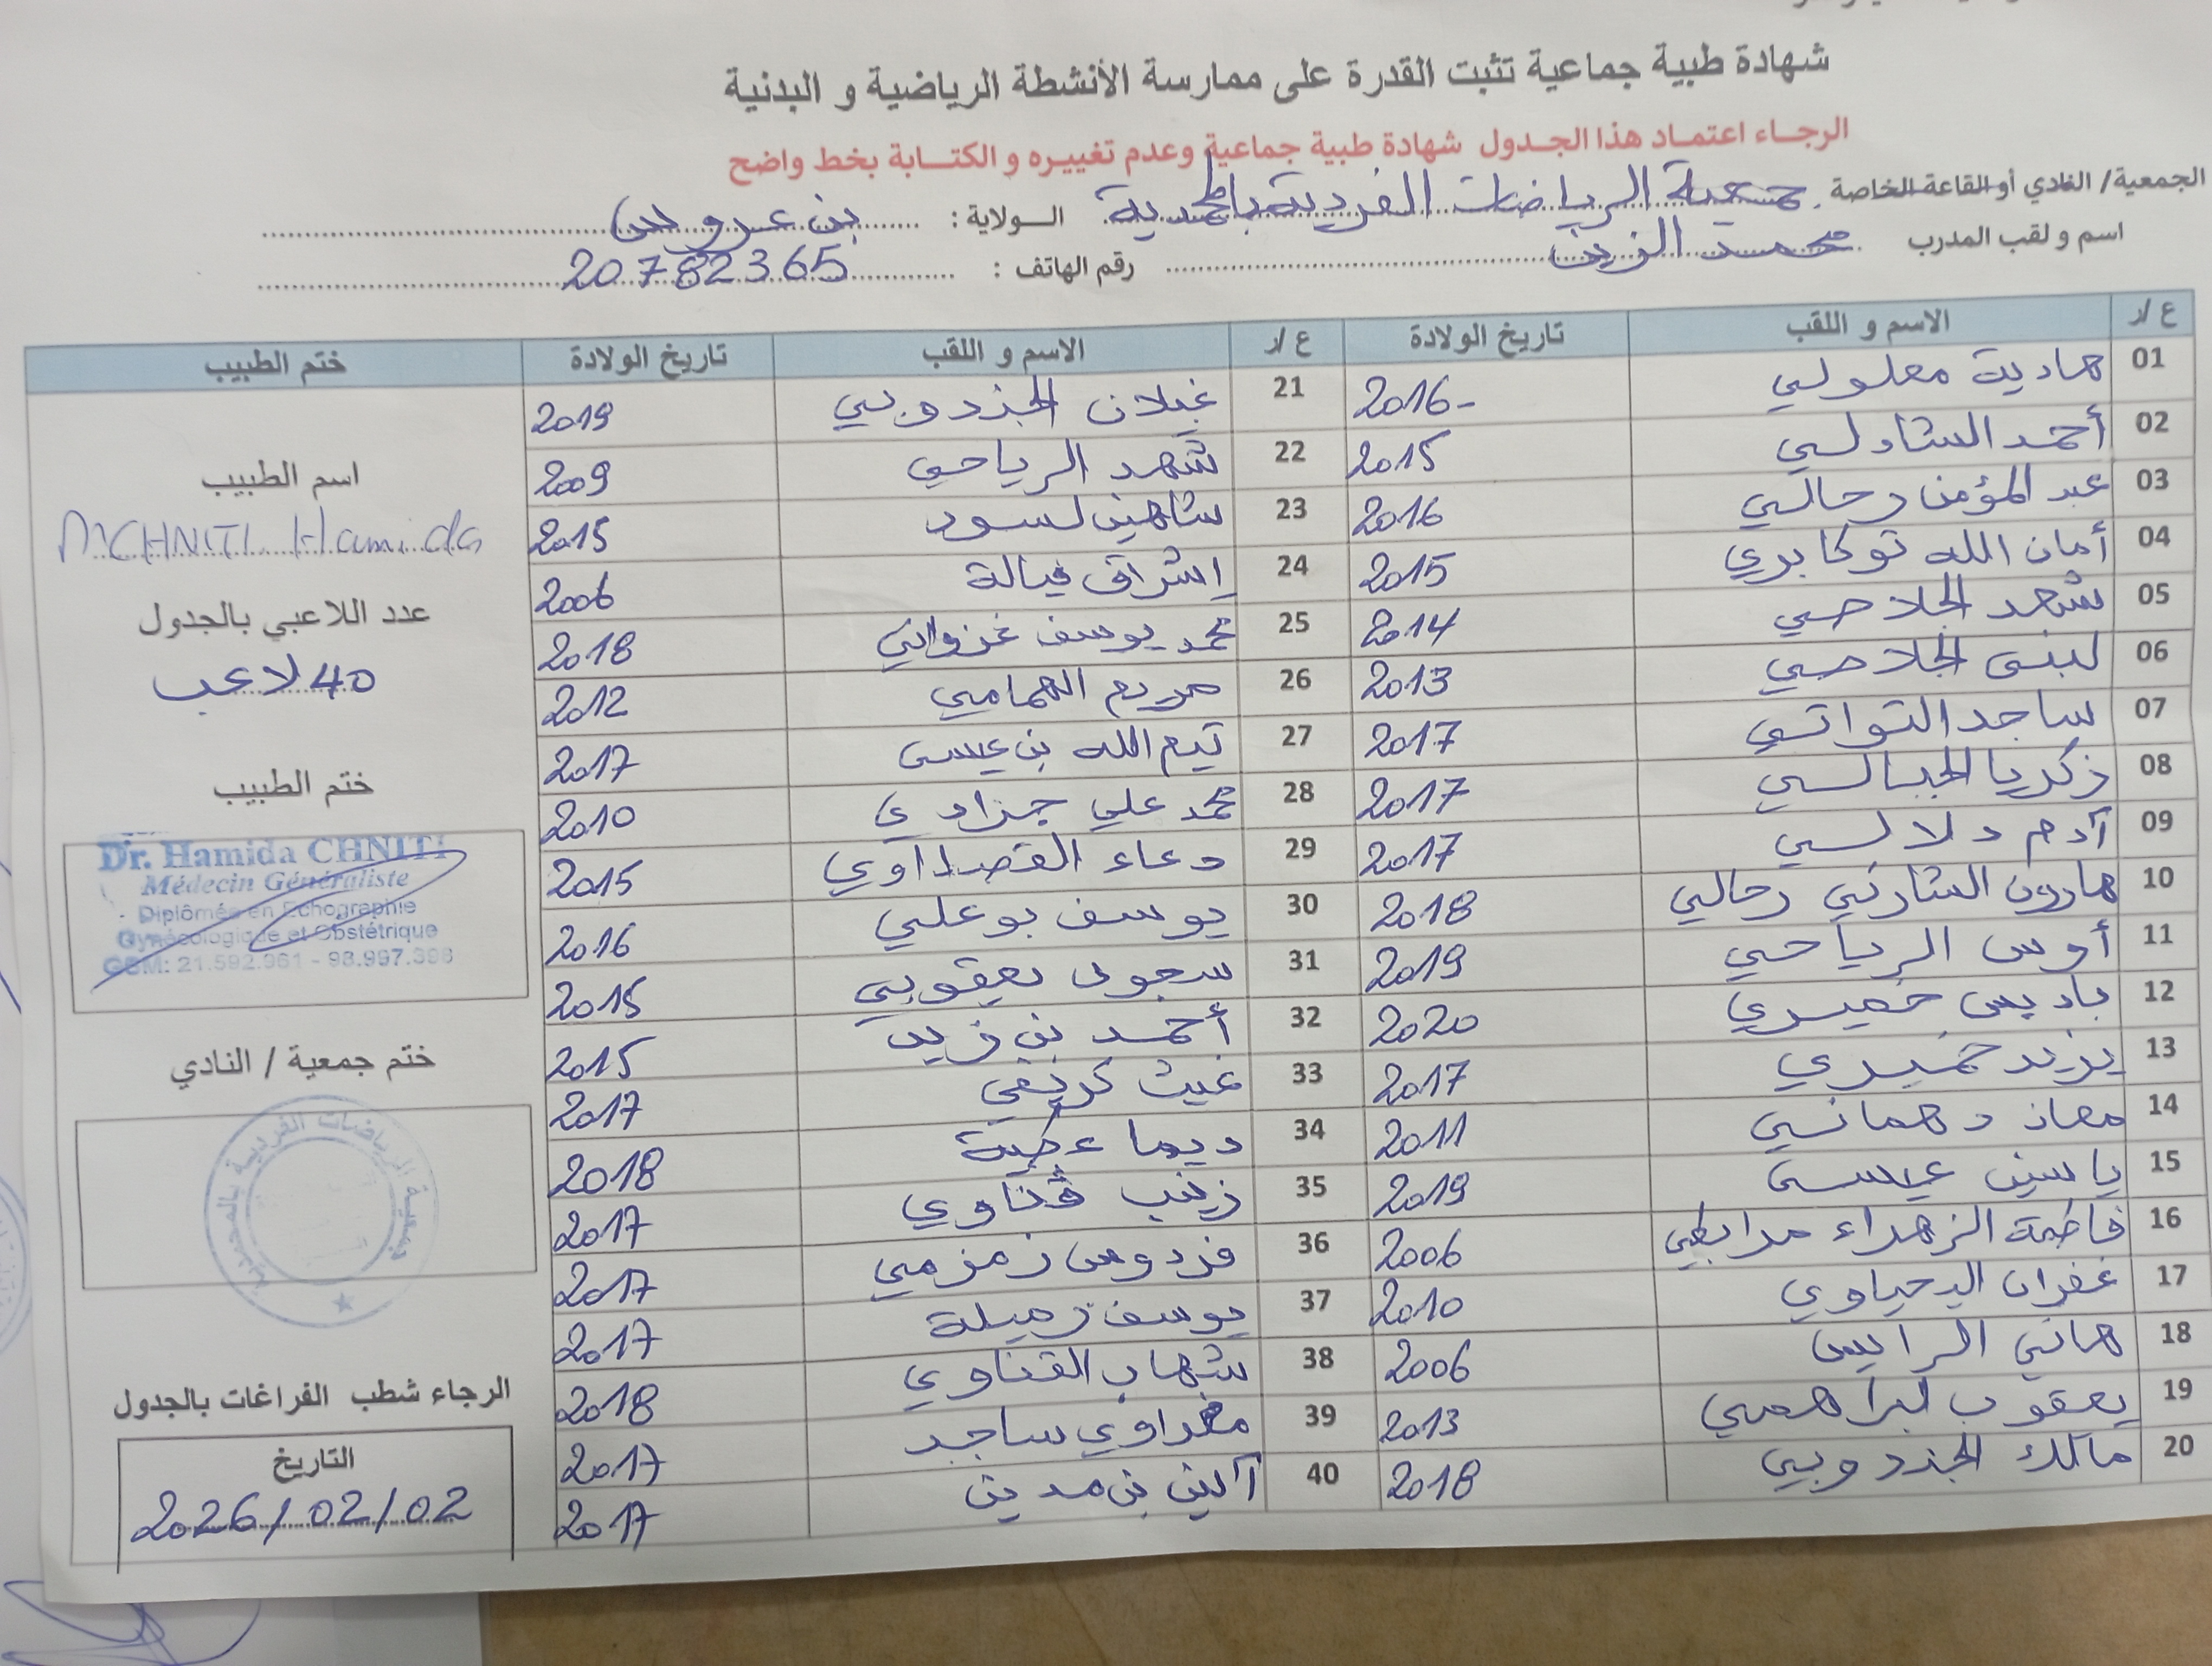 شهادة طبية جماعية تثبت القدرة على ممارسة الأنشطة الرياضية و البدنية
الرجـاء اعتمـاد هذا الجـدول شهادة طبية جماعية وعدم تغييـره و الكتـابة بخط واضح
الجمعية/ النادي أو القاعة الخاصة جمعية الرياضات الفردية بالمحمدية الـولاية : بن عروس
اسم و لقب المدرب محمد الزين رقم الهاتف : 20782365
ع /ر الاسم و اللقب تاريخ الولادة ع /ر الاسم و اللقب تاريخ الولادة ختم الطبيب
01 هادية معلولي 2016- 21 غيلان الجندوبي 2019
02 أحمد الشادلي 2015 22 شهد الرياحي 2009
03 عبد المؤمن رحالي 2016 23 شاهين لسود 2015
04 أمان الله توكابري 2015 24 إشراق فيالة 2006
05 شهد الجلاصي 2014 25 محمد يوسف غزواني 2018
06 لبنى الجلاصي 2013 26 مريم الهمامي 2012
07 ساجد التواتي 2017 27 تيم الله بن عيسى 2017
08 زكريا الجبالي 2017 28 محمد علي جزادي 2010
09 آدم دلالسي 2017 29 دعاء القصداوي 2015
10 هارون الشارني رحالي 2018 30 يوسف بوعلي 2016
11 أوس الرياحي 2019 31 سجود يعقوبي 2015
12 باديس خميري 2020 32 أحمد بن زيد 2015
13 يزيد خميري 2017 33 غيث كريفي 2017
14 معاذ دهماني 2011 34 ديما 2018
15 ياسين عيسى 2019 35 زينب ڨناوي 2017
16 فاطمة الزهراء مرابطي 2006 36 فردوس زمزمي 2017
17 غفران اليحياوي 2010 37 يوسف رميلة 2017
18 هاني الرايس 2006 38 شهاب القناوي 2018
19 يعقوب لبراهمي 2013 39 مغراوي ساجد 2017
20 مالك الجندوبي 2018 40 آلين بن مدين 2017
اسم الطبيب
CHNITI Hamida
عدد اللاعبي بالجدول
40 لاعب
ختم الطبيب
Dr. Hamida CHNITI
Médecin Généraliste
Diplômée en Echographie
Gynécologique et Obstétrique
GSM: 21.592.961 - 98.997.398
ختم جمعية / النادي
جمعية الرياضات الفردية بالمحمدية
الرجاء شطب الفراغات بالجدول
التاريخ
2026/02/02